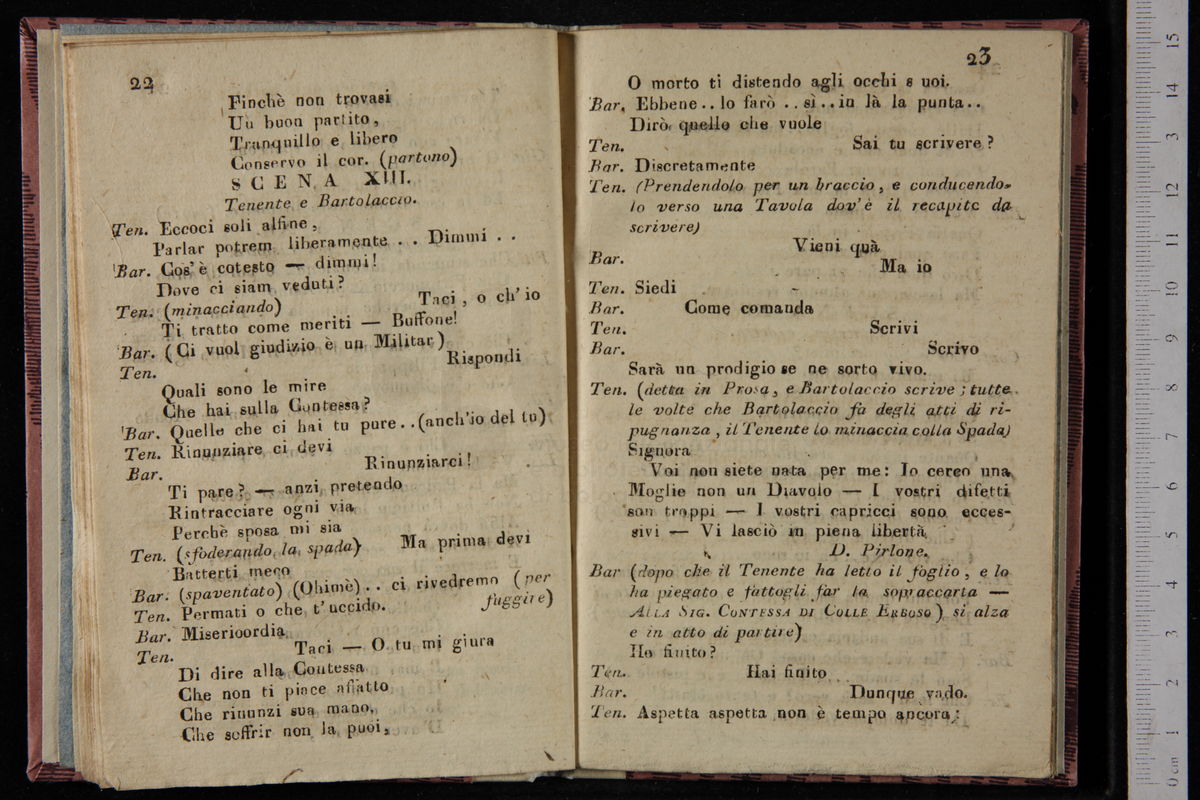 22
Finchè non trovasi
Un buon partito,
Tranquillo e libero
Conservo il cor. (partono)
SCENA XIII.
Tenente e Bartolaccio.
Ten. Eccoci soli alfine,
Parlar potrem liberamente . . Dimmi . .
Bar. Cos'è cotesto — dimmi!
Dove ci siam veduti?
Ten. (minacciando) Taci, o ch'io
Ti tratto come meriti — Buffone!
Bar. (Ci vuol giudizio è un Militar)
Ten. Rispondi
Quali sono le mire
Che hai sulla Contessa?
Bar. Quelle che ci hai tu pure..(anch'io del tu)
Ten. Rinunziare ci devi
Bar. Rinunziarci!
Ti pare? — anzi pretendo
Rintracciare ogni via
Perchè sposa mi sia
Ten. (sfoderando la spada) Ma prima devi
Batterti meco
Bar. (spaventato) (Ohimè) . . ci rivedremo (per
Ten. Fermati o che t'uccido. fuggire)
Bar. Miserioordia
Ten. Taci — O tu mi giura
Di dire alla Contessa
Che non ti piace affatto
Che rinunzi sua mano,
Che soffrir non la puoi,
23
O morto ti distendo agli occhi s uoi.
Bar. Ebbene . . lo farò . . sì . . in là la punta . .
Dirò quello che vuole
Ten. Sai tu scrivere?
Bar. Discretamente
Ten. (Prendendolo per un braccio, e conducendo-
lo verso una Tavola dov'è il recapito da
scrivere)
Vieni quà
Bar. Ma io
Ten. Siedi
Bar. Come comanda
Ten. Scrivi
Bar. Scrivo
Sarà un prodigio se ne sorto vivo.
Ten. (detta in Prosa, e Bartolaccio scrive; tutte
le volte che Bartolaccio fa degli atti di ri-
pugnanza, il Tenente lo minaccia colla Spada)
Signora
Voi non siete nata per me: Io cerco una
Moglie non un Diavolo — I vostri difetti
son troppi — I vostri capricci sono ecces-
sivi — Vi lasciò in piena libertà
D. Pirlone.
Bar (dopo che il Tenente ha letto il foglio, e lo
ha piegato e fattogli far la sopraccarta —
ALLA SIG. CONTESSA DI COLLE ERBOSO) si alza
e in atto di partire)
Ho finito?
Ten. Hai finito
Bar. Dunque vado.
Ten. Aspetta aspetta non è tempo ancora;
15
14
13
12
11
10
9
8
7
6
5
4
3
2
1
0 cm